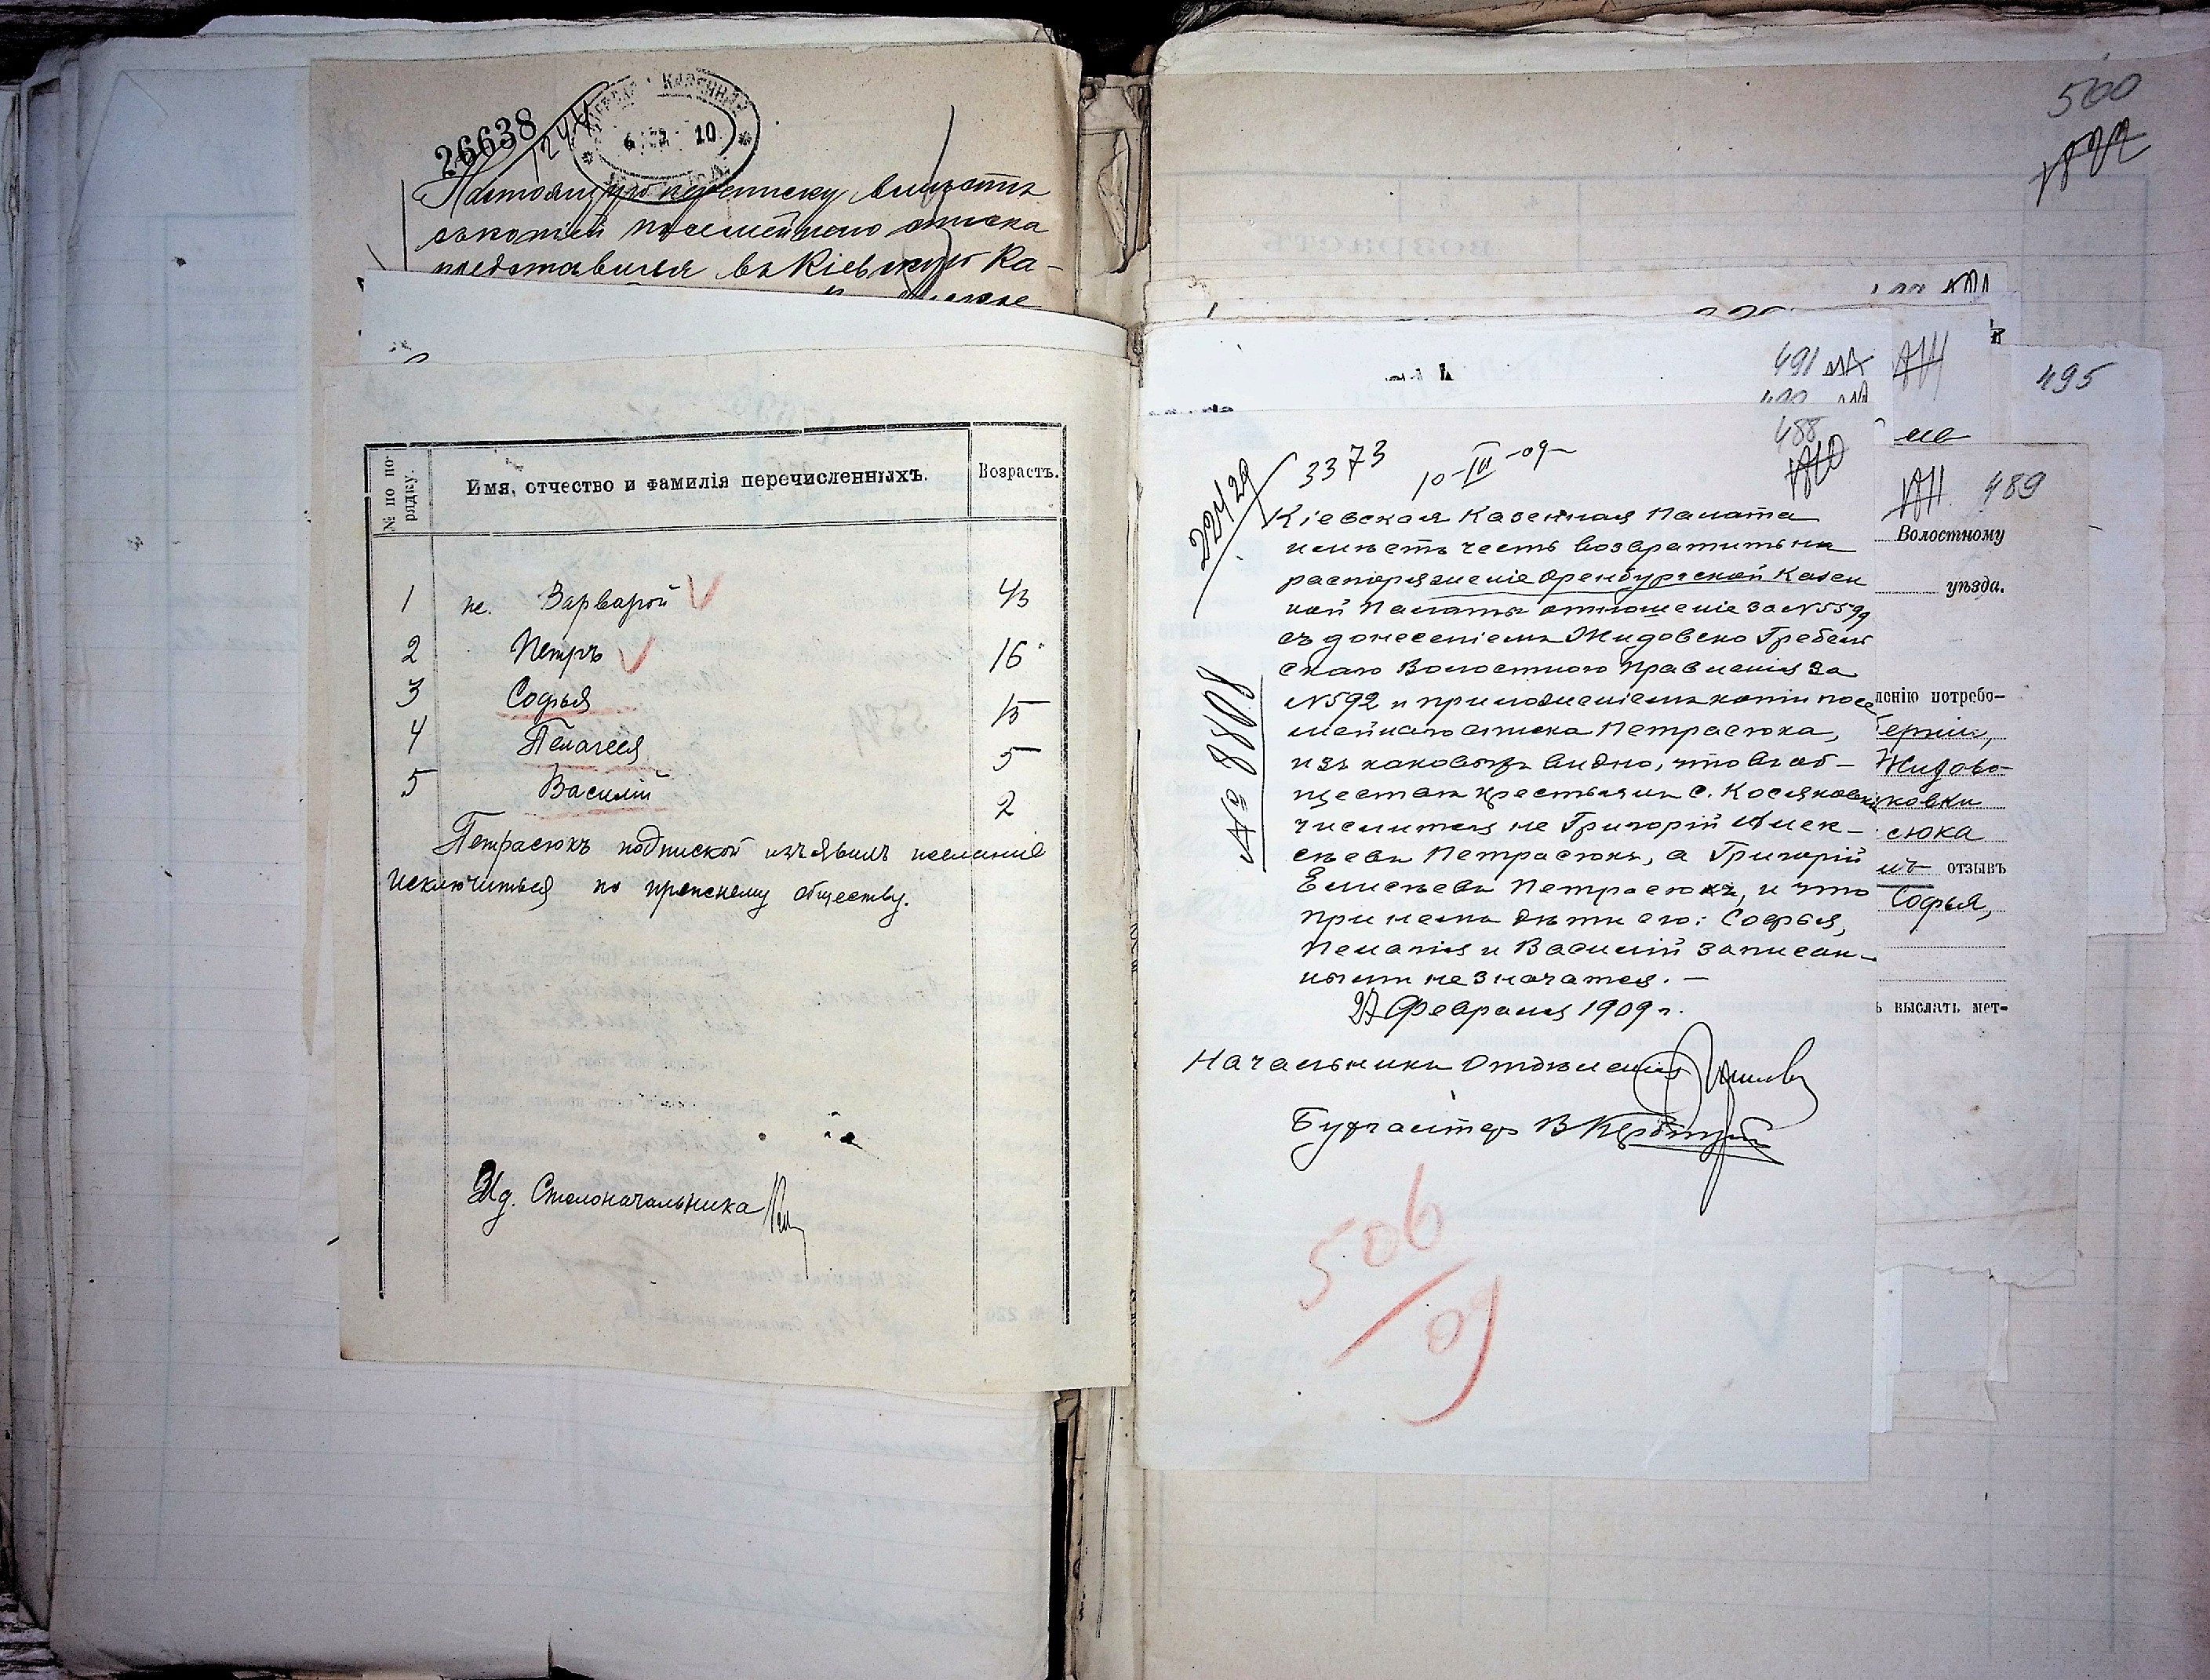 26638
1244
КАЗЕННАЯ
10
Настоящую переписку вмѣстѣ
съ копіей посемейнаго списка
представилъ въ Кіевскую Ка-
№ по по-
рядку.
Имя, отчество и фамилія перечисленныхъ.
Возрастъ.
1 же. Варварой 43
2 Петръ 16
3 Софья 15
4 Пелагея 5
5 Василій 2
Петрасюкъ подпиской изъявилъ желаніе
исключиться по прежнему обществу.
Ид. Столоначальника
500
495
491
488
489
3373
10-III-09
224/29
№ 8808
Кіевская Казенная Палата
имѣетъ честь возвратить на
распоряженіе Оренбургской Казен
ной Палаты отношеніе за №5594
съ донесеніемъ Жидовско Гребель
скаго Волостного Правленія за
№592 и приложеніемъ копіи посе
мейнаго списка Петрасюка,
изъ каковыхъ видно, что въ об-
ществѣ крестьянъ с. Косяковки
числится не Григорій Алек-
сѣевъ Петрасюкъ, а Григорій
Елисѣевъ Петрасюкъ, и что
при немъ дѣти его: Софья,
Пелагія и Василій записан-
ными не значатся. —
27 Февраля 1909 г.
Начальникъ Отдѣленія
Бухгалтеръ
506/09
Волостному
уѣзда.
ленію потребо-
берніи,
Жидово-
ковки
сюка
отзывъ
Софья,
ь выслать мет-